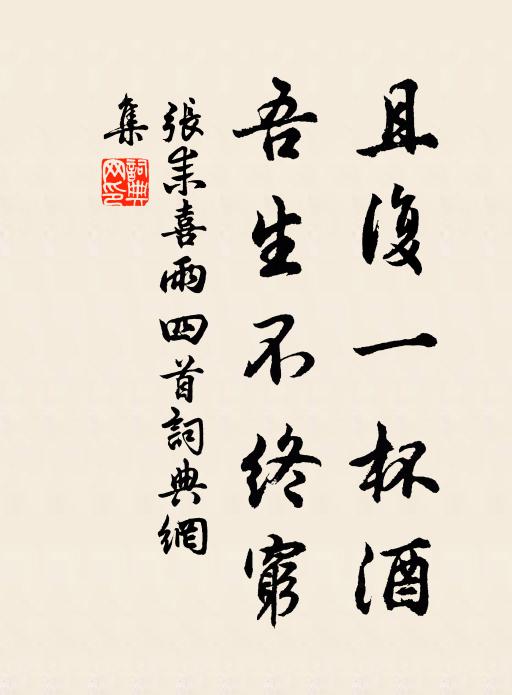 且復一杯酒
吾生不終窮
張耒喜雨四首詞典網
集
詞典網印